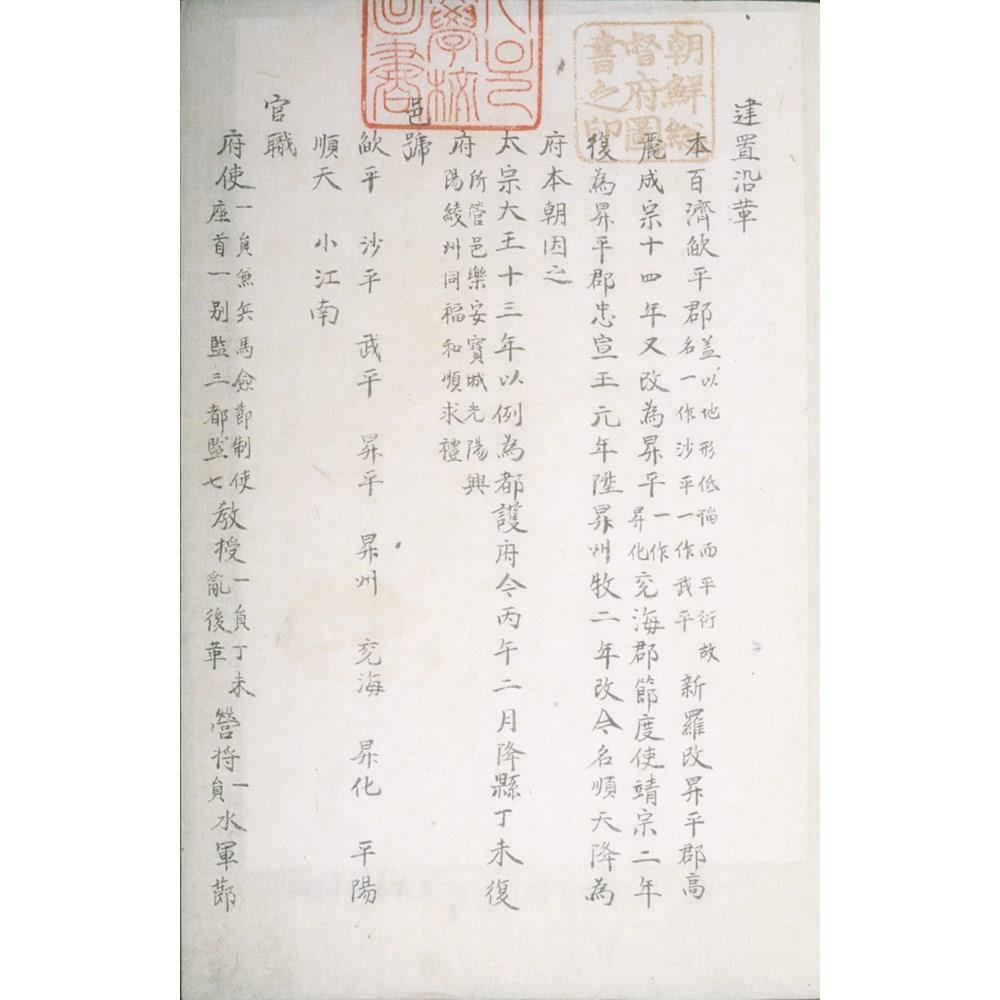 建置沿革
本百濟歃平郡盖以地形低䧟而平衍故名一作沙平一作武平新羅改昇平郡高
麗成宗十四年又改為昇平一作昇化兗海郡節度使靖宗二年
復為昇平郡忠宣王元年陞昇州牧二年改今名順天降為
府本朝因之
太宗大王十三年以例為都護府今丙午二月降縣丁未復
府所管邑樂安寶城光陽興陽綾州同福和順求禮
邑號
歃平 沙平 武平 昇平 昇州 兗海 昇化 平陽
順天 小江南
官職
府使一員兼兵馬僉節制使座首一別監三都監七教授一員丁未亂後革營將一員水軍節
朝鮮總
督府圖
書之印
學校
圖書